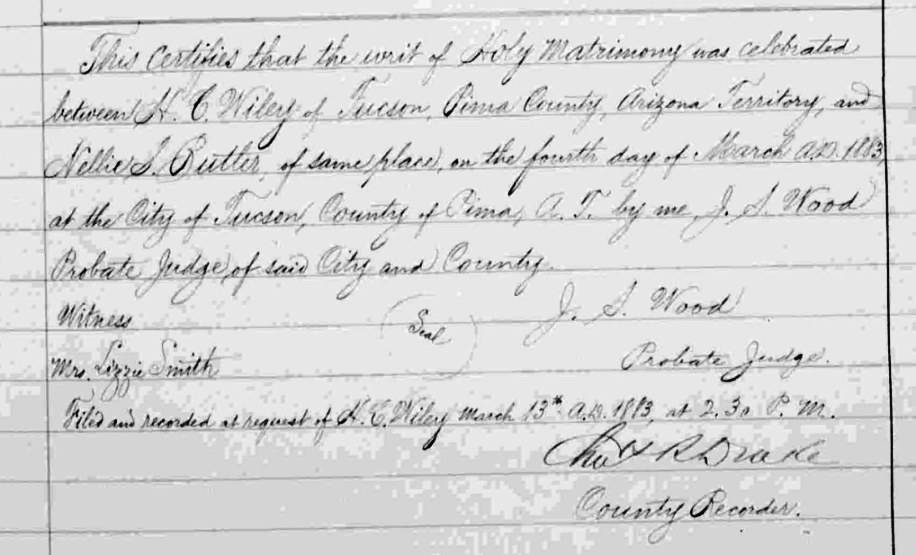 This certifies that the writ of Holy Matrimony was celebrated
between H. E. Wiley of Tucson, Pima County, Arizona Territory, and
Nellie S. Butler, of same place, on the fourth day of March A.D. 1883
at the City of Tucson, County of Pima, A. T. by me, J. S. Wood
Probate Judge, of said City and County.
Witness
(Seal)
J. S. Wood
Mrs. Lizzie Smith
Probate Judge.
Filed and recorded at request of H. E. Wiley March 13th A.D. 1883, at 2.30 P. M.
Chas R Drake
County Recorder.